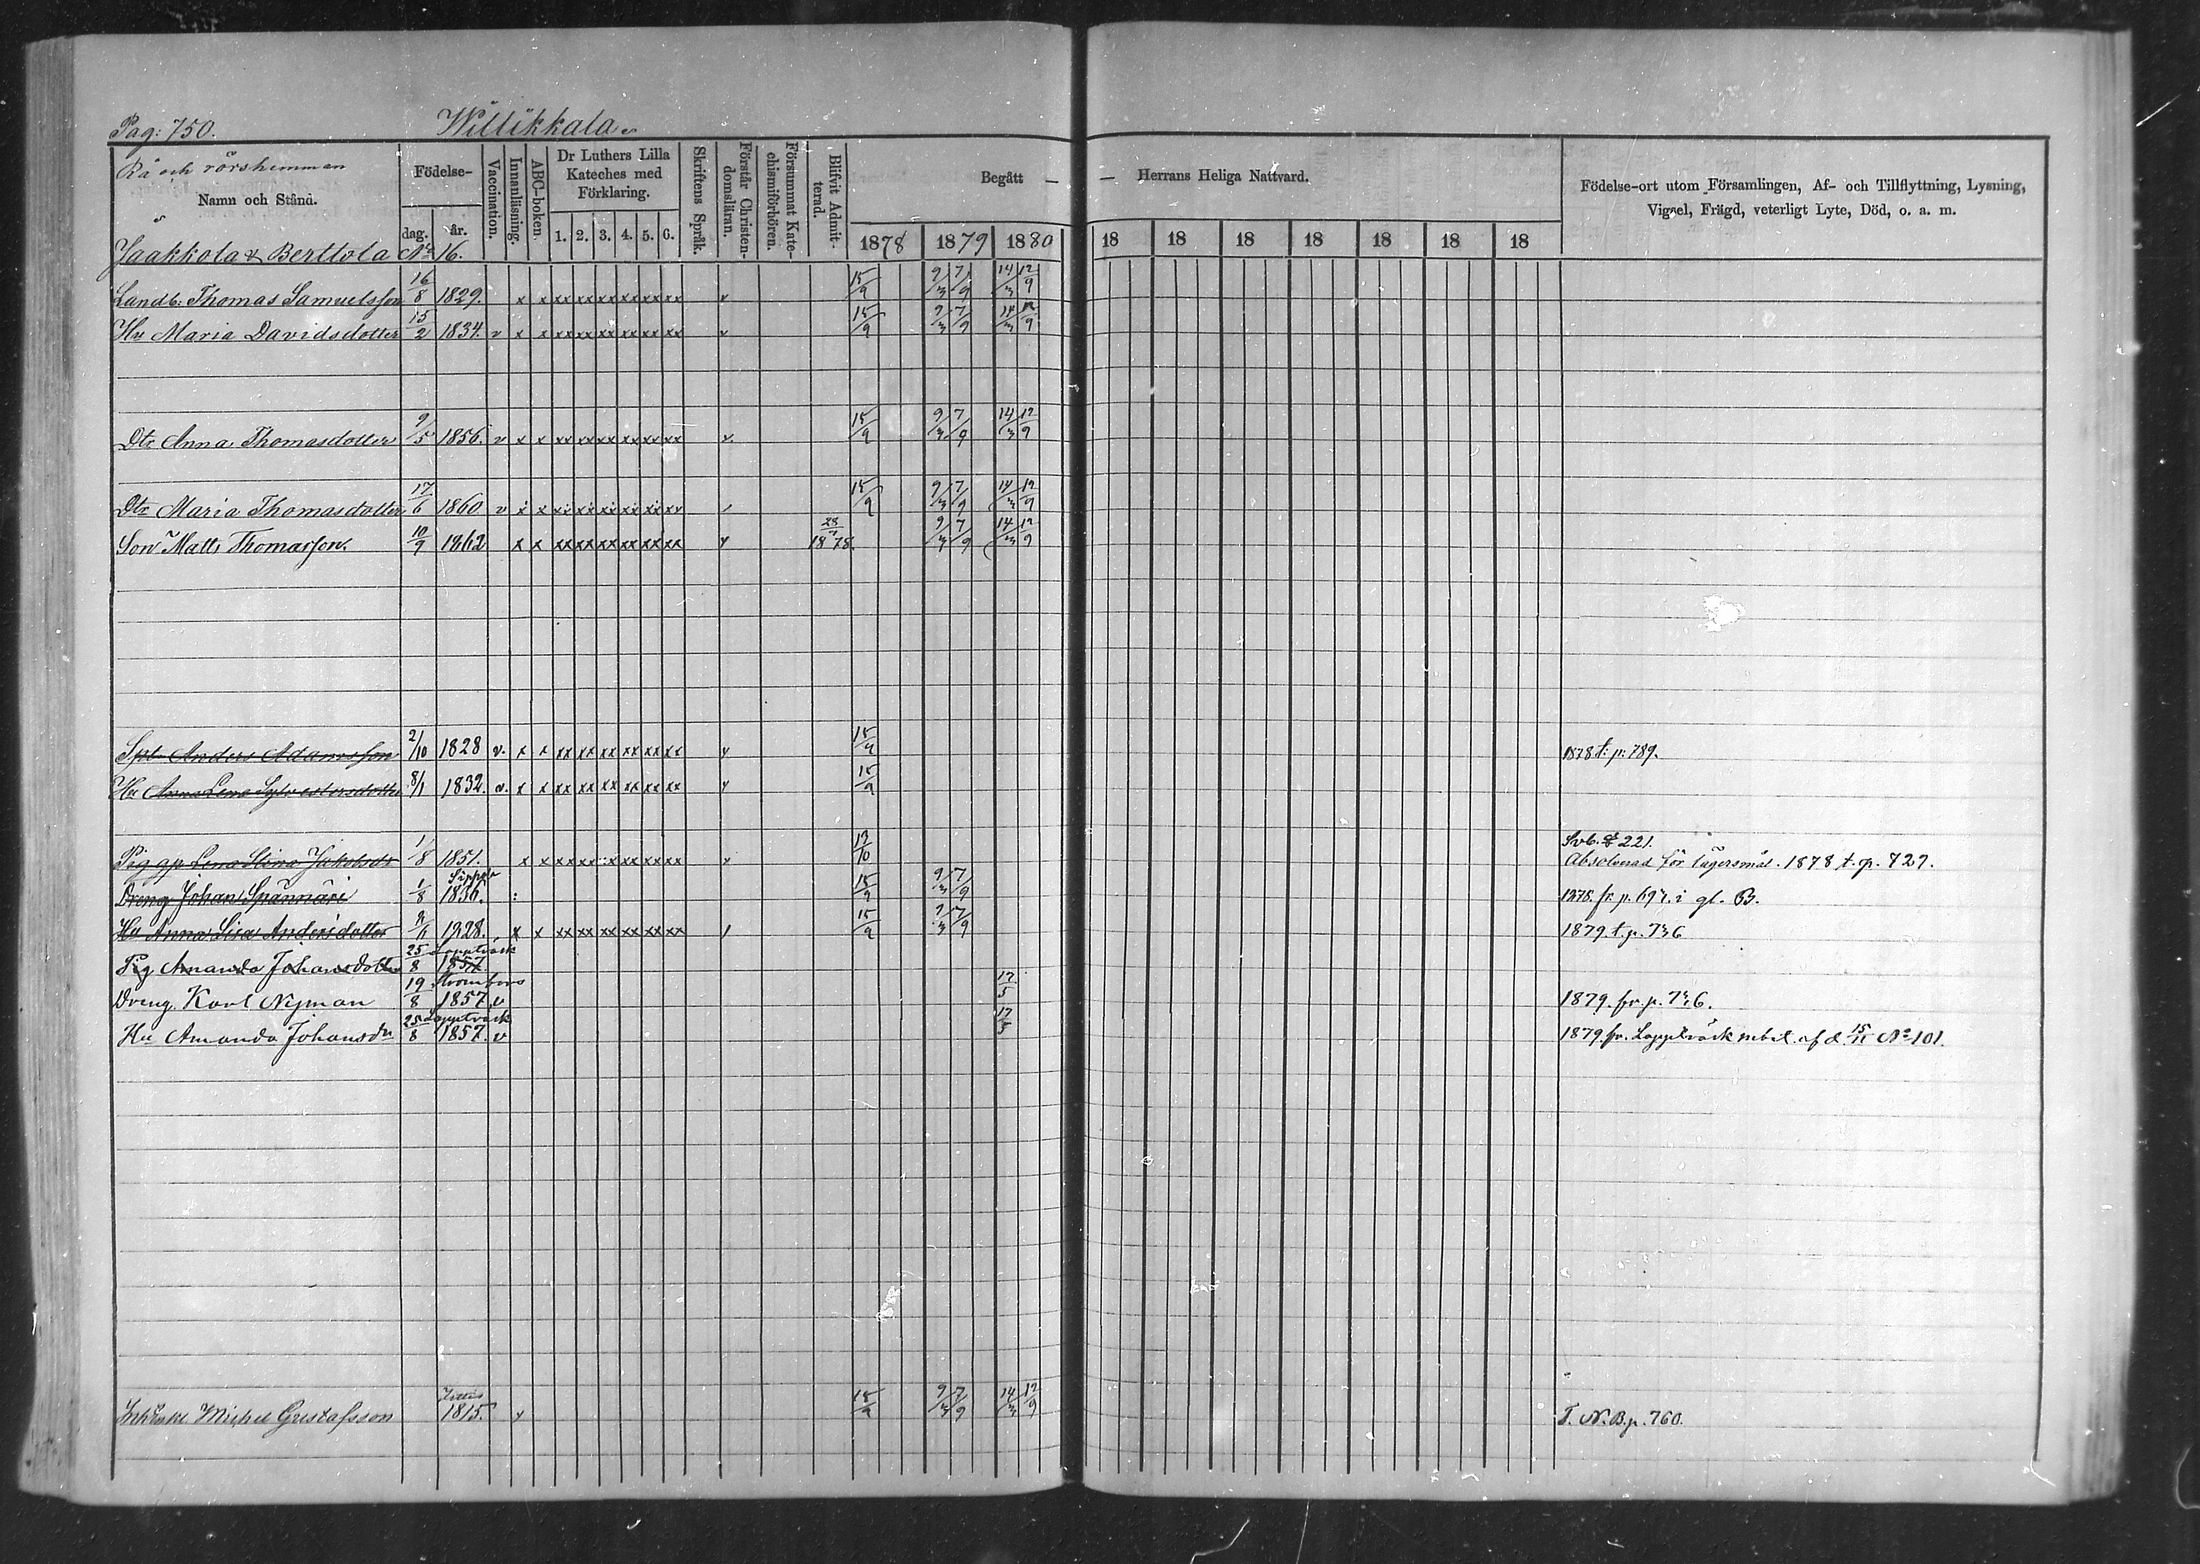 Pag: 750. Willikkala.
Rå och rörshemman
Namn och Stånd.
Födelse-
dag. år.
Vaccination.
Innanläsning.
ABC-boken.
Dr Luthers Lilla
Kateches med
Förklaring.
1. 2. 3. 4. 5. 6.
Skriftens Språk.
Förstår Christen-
domsläran.
Försummat Kate-
chismiförhören.
Blifvit Admit-
terad.
Begått — — Herrans Heliga Nattvard.
1878 1879 1880 18 18 18 18 18 18 18
Födelse-ort utom Församlingen, Af- och Tillflyttning, Lysning,
Vigsel, Frägd, veterligt Lyte, Död, o. a. m.
Jaakkola & Berttola No 16.
Landb: Thomas Samuelsson 16/8 1829. x x xx xx xx xx xx xx v 15/9 9/3 7/9 14/3 12/9
Hu Maria Davidsdotter 15/2 1834. v x x xx xx xx xx xx xx v 15/9 9/3 7/9 14/3 12/9
Dtr Anna Thomasdotter 9/5 1856. v x x xx xx xx xx xx xx v 15/9 9/3 7/9 14/3 12/9
Dtr Maria Thomasdotter 17/6 1860 v x x xx xx xx xx xx xx 15/9 9/3 7/9 14/3 12/9
Son Matts Thomasson. 10/9 1862 x x xx xx xx xx xx xx v 1878. 9/3 7/9 14/3 12/9
Anders Adamsson 2/10 1828 v. x x xx xx xx xx xx xx v 15/9 1878 t. p. 789.
Hu Anna Lena Sylvestersdotter 8/1 1832. v. x x xx xx xx xx xx xx v 15/9
221.
Pig Lena Stina Jakobsdr 1/8 1851. x x xx xx xx xx xx xx v 13/10 Absolverad för lägersmål. 1878 t. p. 727.
Dreng Johan Spännäri 1/8 1836. 15/9 9/3 7/9 1878. fr. p. i gl. B.
Hu Anna Lisa Andersdotter 1828. x x xx xx xx xx xx xx 15/9 7/9 1879. t. p. 736
Pig Amanda Johansdotter 25/8 Lappträsk 1857
Dreng Karl Nyman 19/8 1857. v 17/5 1879. fr. p. 736.
Hu Amanda Johansdr 25/8 Lappträsk 1857. v 17/5 1879. fr. Lappträsk m. bet. af d. 15/11 No 101.
Michel Gustafsson 1815. v 15/9 9/3 7/9 14/3 12/9 T. N. B. p. 760.